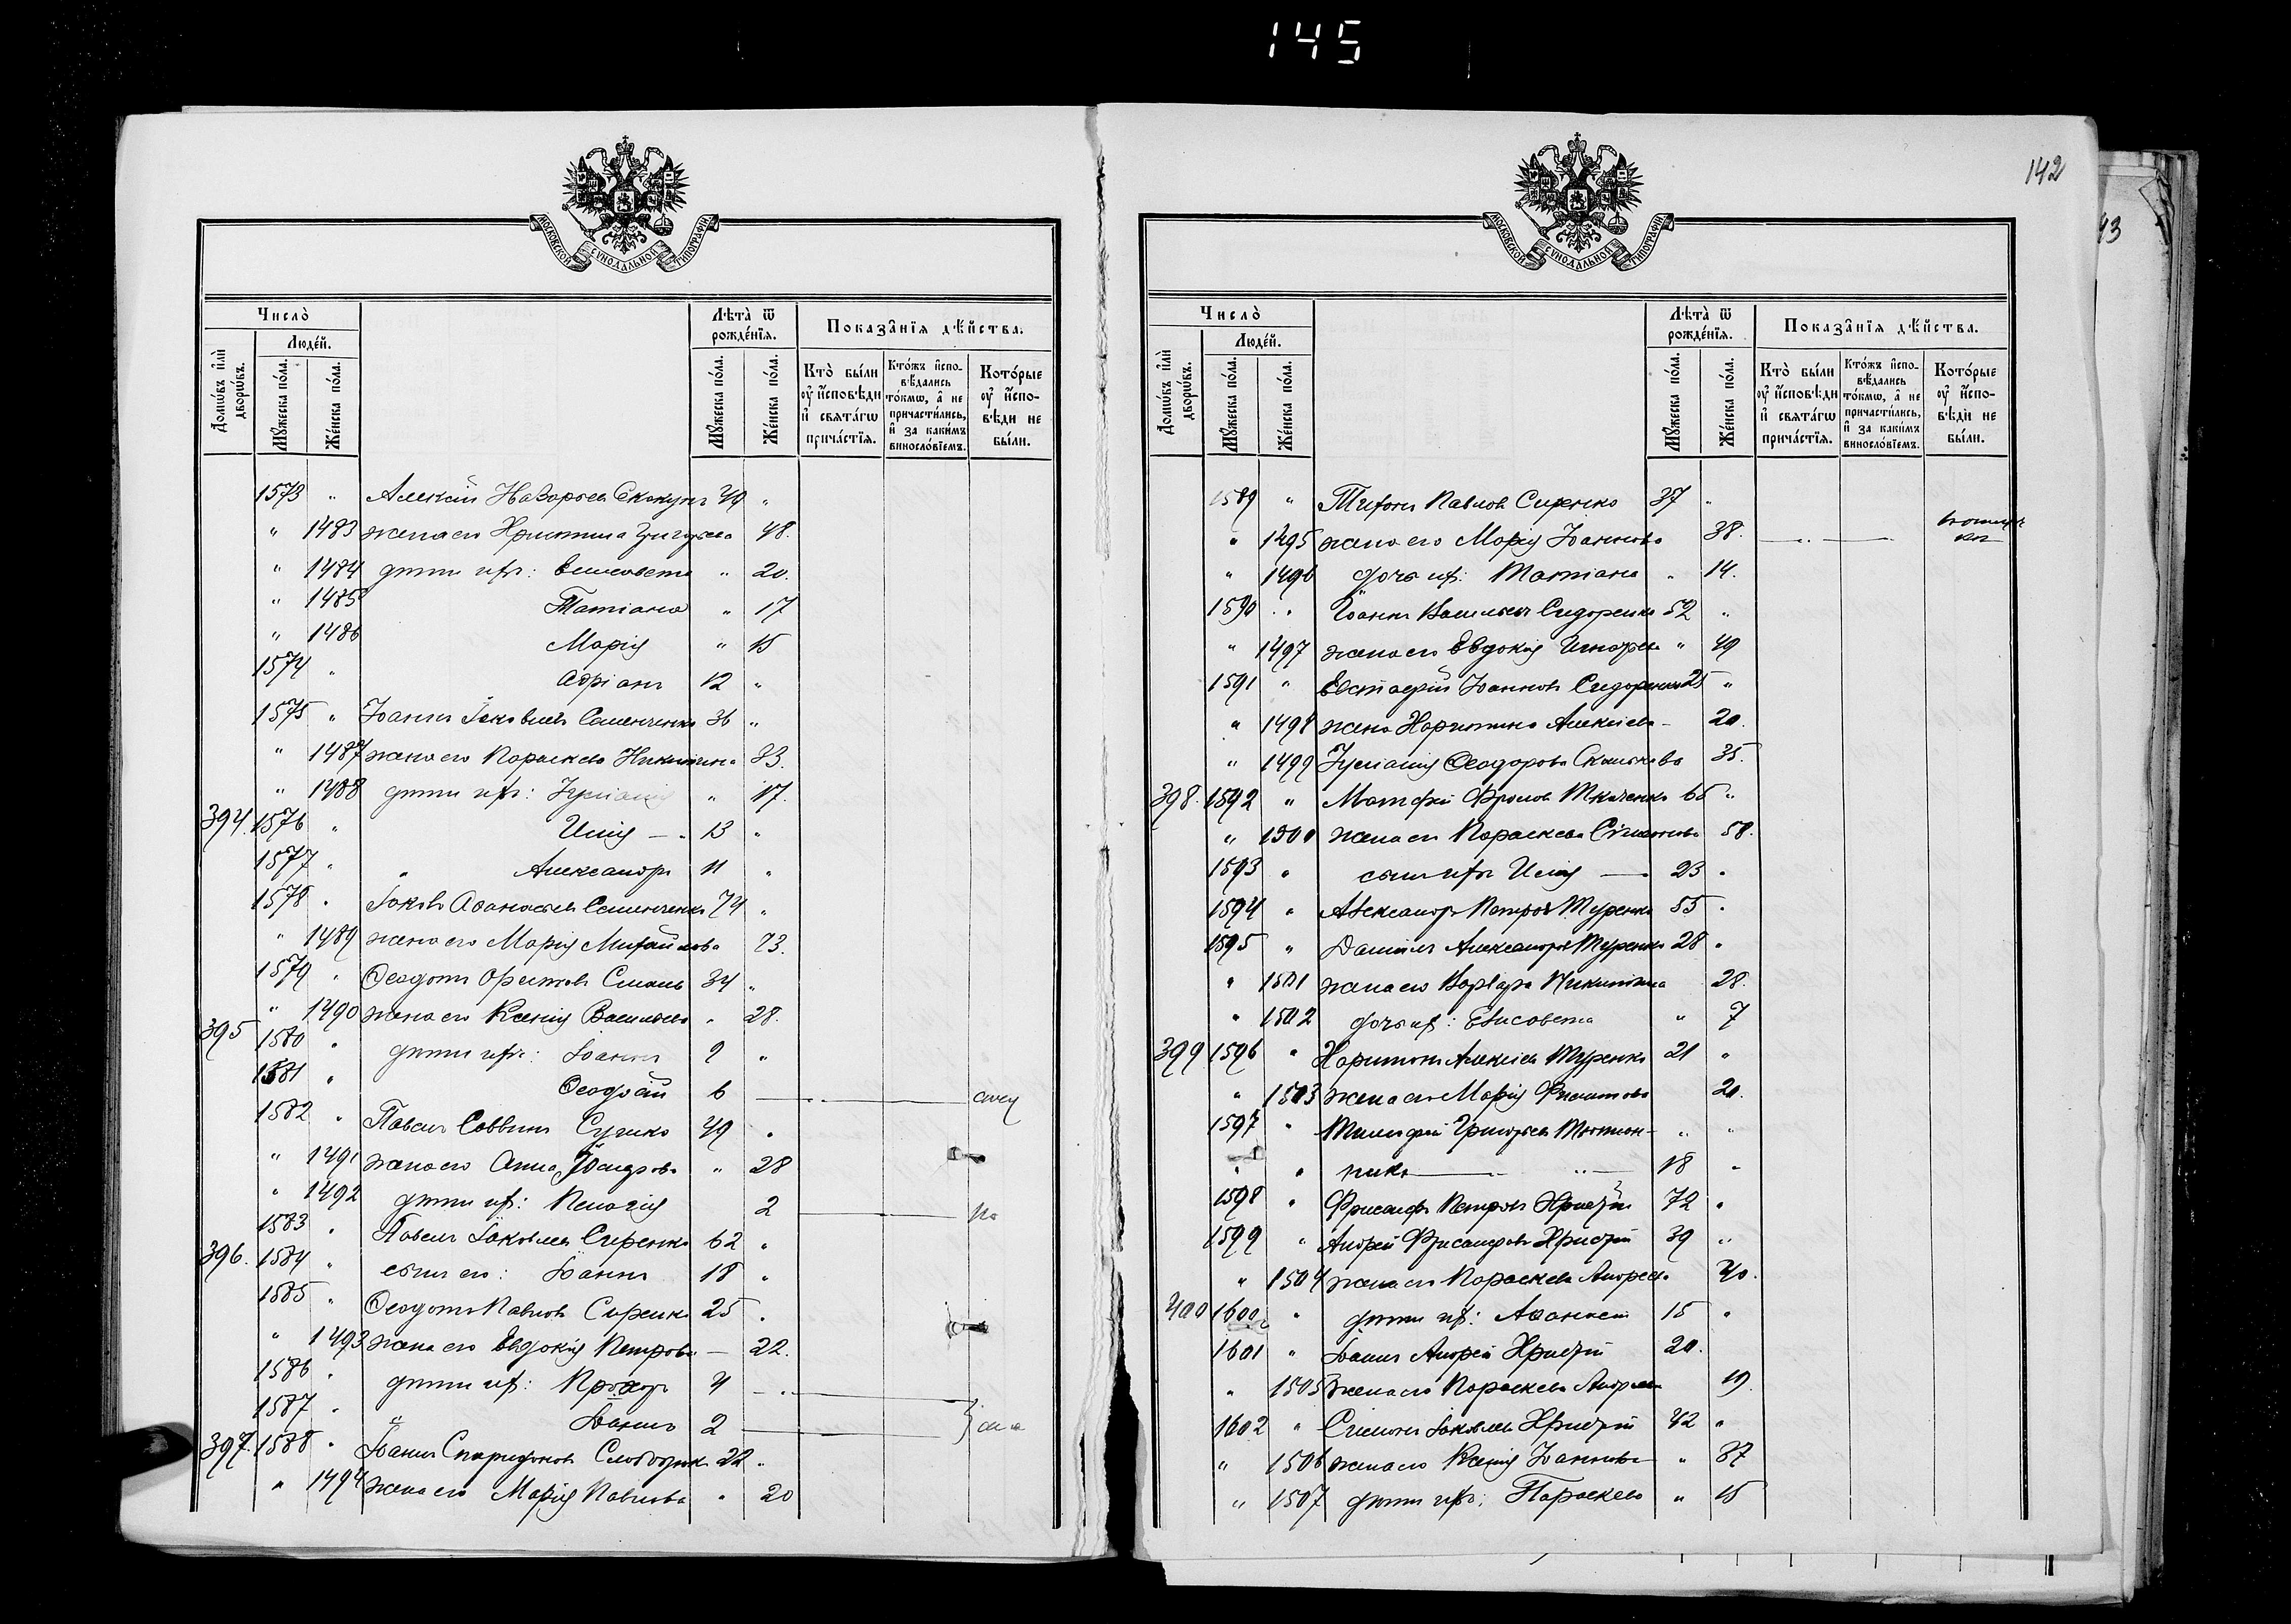 145
МОСКОВСКОЙ СУНОДАЛЬНОЙ ТИПОГРАФІИ
Число̀
Домѡ́въ и҆лѝ дворѡ́въ.
Люде́й.
Мꙋ́жеска по́ла.
Же́нска по́ла.
Лѣ́та ѿ рожде́нїѧ.
Мꙋ́жеска по́ла.
Же́нска по́ла.
Показа̂нїѧ дѣ́йства.
Кто̀ бы́ли оу҆ и҆́сповѣди и҆ свѧта́гѡ прича́стїѧ.
Кто́жъ и҆спо-вѣ́дались то́кмѡ, а҆ не причасти́лись, и҆ за каки́мъ виносло́вїемъ.
Кото́рые оу҆ и҆́спо-вѣди не бы́ли.
1573 " Алексѣй Назарьевъ Скакунъ 49 "
" 1483 жена его Христина Григорьева 48.
" 1484 дѣти ихъ: Елисавета " 20.
" 1485 Татіана " 17
" 1486 Марія " 15
1574 " Адріанъ 12 "
1575 " Іоаннъ Іаковлевъ Семенченко 36 "
" 1487 жена его Параскева Никитина 33.
" 1488 дѣти ихъ: Іуліанія " 17.
394. 1576 " Илія — " 13 "
1577 " " Александръ 11 "
1578 " Іаковъ Аѳанасьевъ Семенченко 74 "
" 1489 жена его Марія Михайлова 73.
1579 " Ѳеодотъ 34 "
" 1490 жена его Ксенія Васильева " 28.
395 1580 " дѣти ихъ: Іоаннъ 9 "
1581 " Ѳеодосій 6
1582 " Павелъ Саввинъ 49 "
" 1491 жена его Анна " 28
" 1492 дѣти их: Пелагія 2
1583 " Павелъ Іаковлевъ Сиренко 62 "
396. 1584 " сынъ его: Іоаннъ 18 "
1585 " Ѳеодотъ Павловъ Сиренко 25 "
" 1493 жена его Евдокія Петрова — 22.
1586 " дѣти их: Прохоръ 4
1587 " " 2
397. 1588 " Іоаннъ Спиридоновъ 22 "
" 1494 жена его Марія Павлова " 20
142
МОСКОВСКОЙ СУНОДАЛЬНОЙ ТИПОГРАФІИ
Число̀
Домѡ́въ и҆лѝ дворѡ́въ.
Люде́й.
Мꙋ́жеска по́ла.
Же́нска по́ла.
Лѣ́та ѿ рожде́нїѧ.
Мꙋ́жеска по́ла.
Же́нска по́ла.
Показа̂нїѧ дѣ́йства.
Кто̀ бы́ли оу҆ и҆́сповѣди и҆ свѧта́гѡ прича́стїѧ.
Кто́жъ и҆спо-вѣ́дались то́кмѡ, а҆ не причасти́лись, и҆ за каки́мъ виносло́вїемъ.
Кото́рые оу҆ и҆́спо-вѣди не бы́ли.
1589 " Тихонъ Павловъ Сиренко 37 "
" 1495 жена его Марія Іоаннова 38.
" 1496 дочь их: Татіана " 14.
1590 " Іоаннъ Васильевъ Сидоренко 52 "
" 1497 жена его Евдокія " 49
1591 " Евстафій Іоанновъ Сидоренко 25 "
" 1498 жена Харитина Алексіева — 20.
" 1499 Іуліанія Ѳеодорова 35.
398. 1592 " Матѳей Фроловъ Ткаченко 65 "
" 1500 жена его Параскева 58.
1593 " сынъ ихъ Илія — 23 "
1594 " Александръ Петровъ Туренко 55 "
1595 " Даніилъ Александровъ Туренко 28 "
" 1501 жена его Варвара Никитина 28.
" 1502 дочь их: Елисавета " 7
399 1596 " Харитонъ Алексіевъ Туренко 21 "
" 1503 жена его Марія Филиппова 20.
1597 " Григорьевъ " "
" " 18 "
1598 " Петровъ Христій 72 "
1599 " Андрей Христій 39 "
" 1504 жена его Параскева Андреева 40.
400 1600 " дѣти их: 15 "
1601 " Андрей Христій 20.
" 1505 жена его Параскева 19.
1602 " Симеонъ Іаковлевъ Христій 42 "
" 1506 жена его Ксенія Іоаннова " 37
" 1507 дѣти ихъ: Параскева " 15
43